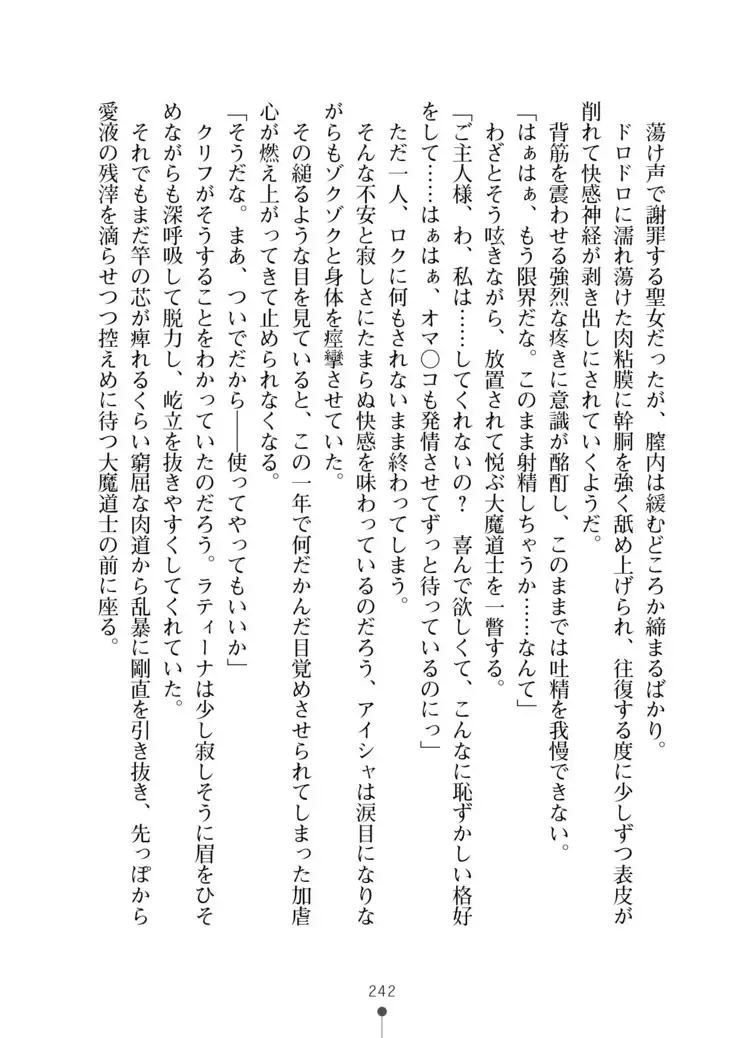 蕩け声で謝罪する聖女だったが、膣内は緩むどころか締まるばかり。
ドロドロに濡れ蕩けた肉粘膜に幹胴を強く舐め上げられ、往復する度に少しずつ表皮が
削れて快感神経が剥き出しにされていくようだ。
背筋を震わせる強烈な疼きに意識が酩酊し、このままでは吐精を我慢できない。
「はぁはぁ、もう限界だな。このまま射精しちゃうか……なんて」
わざとそう呟きながら、放置されて悦ぶ大魔道士を一瞥する。
「ご主人様、わ、私は……してくれないの？　喜んで欲しくて、こんなに恥ずかしい格好
をして……はぁはぁ、オマ〇コも発情させてずっと待っているのにっ」
ただ一人、ロクに何もされないまま終わってしまう。
そんな不安と寂しさにたまらぬ快感を味わっているのだろう、アイシャは涙目になりな
がらもゾクゾクと身体を痙攣させていた。
その縋るような目を見ていると、この一年で何だかんだ目覚めさせられてしまった加虐
心が燃え上がってきて止められなくなる。
「そうだな。まあ、ついでだから――使ってやってもいいか」
クリフがそうすることをわかっていたのだろう。ラティーナは少し寂しそうに眉をひそ
めながらも深呼吸して脱力し、屹立を抜きやすくしてくれていた。
それでもまだ竿の芯が痺れるくらい窮屈な肉道から乱暴に剛直を引き抜き、先っぽから
愛液の残滓を滴らせつつ控えめに待つ大魔道士の前に座る。
242